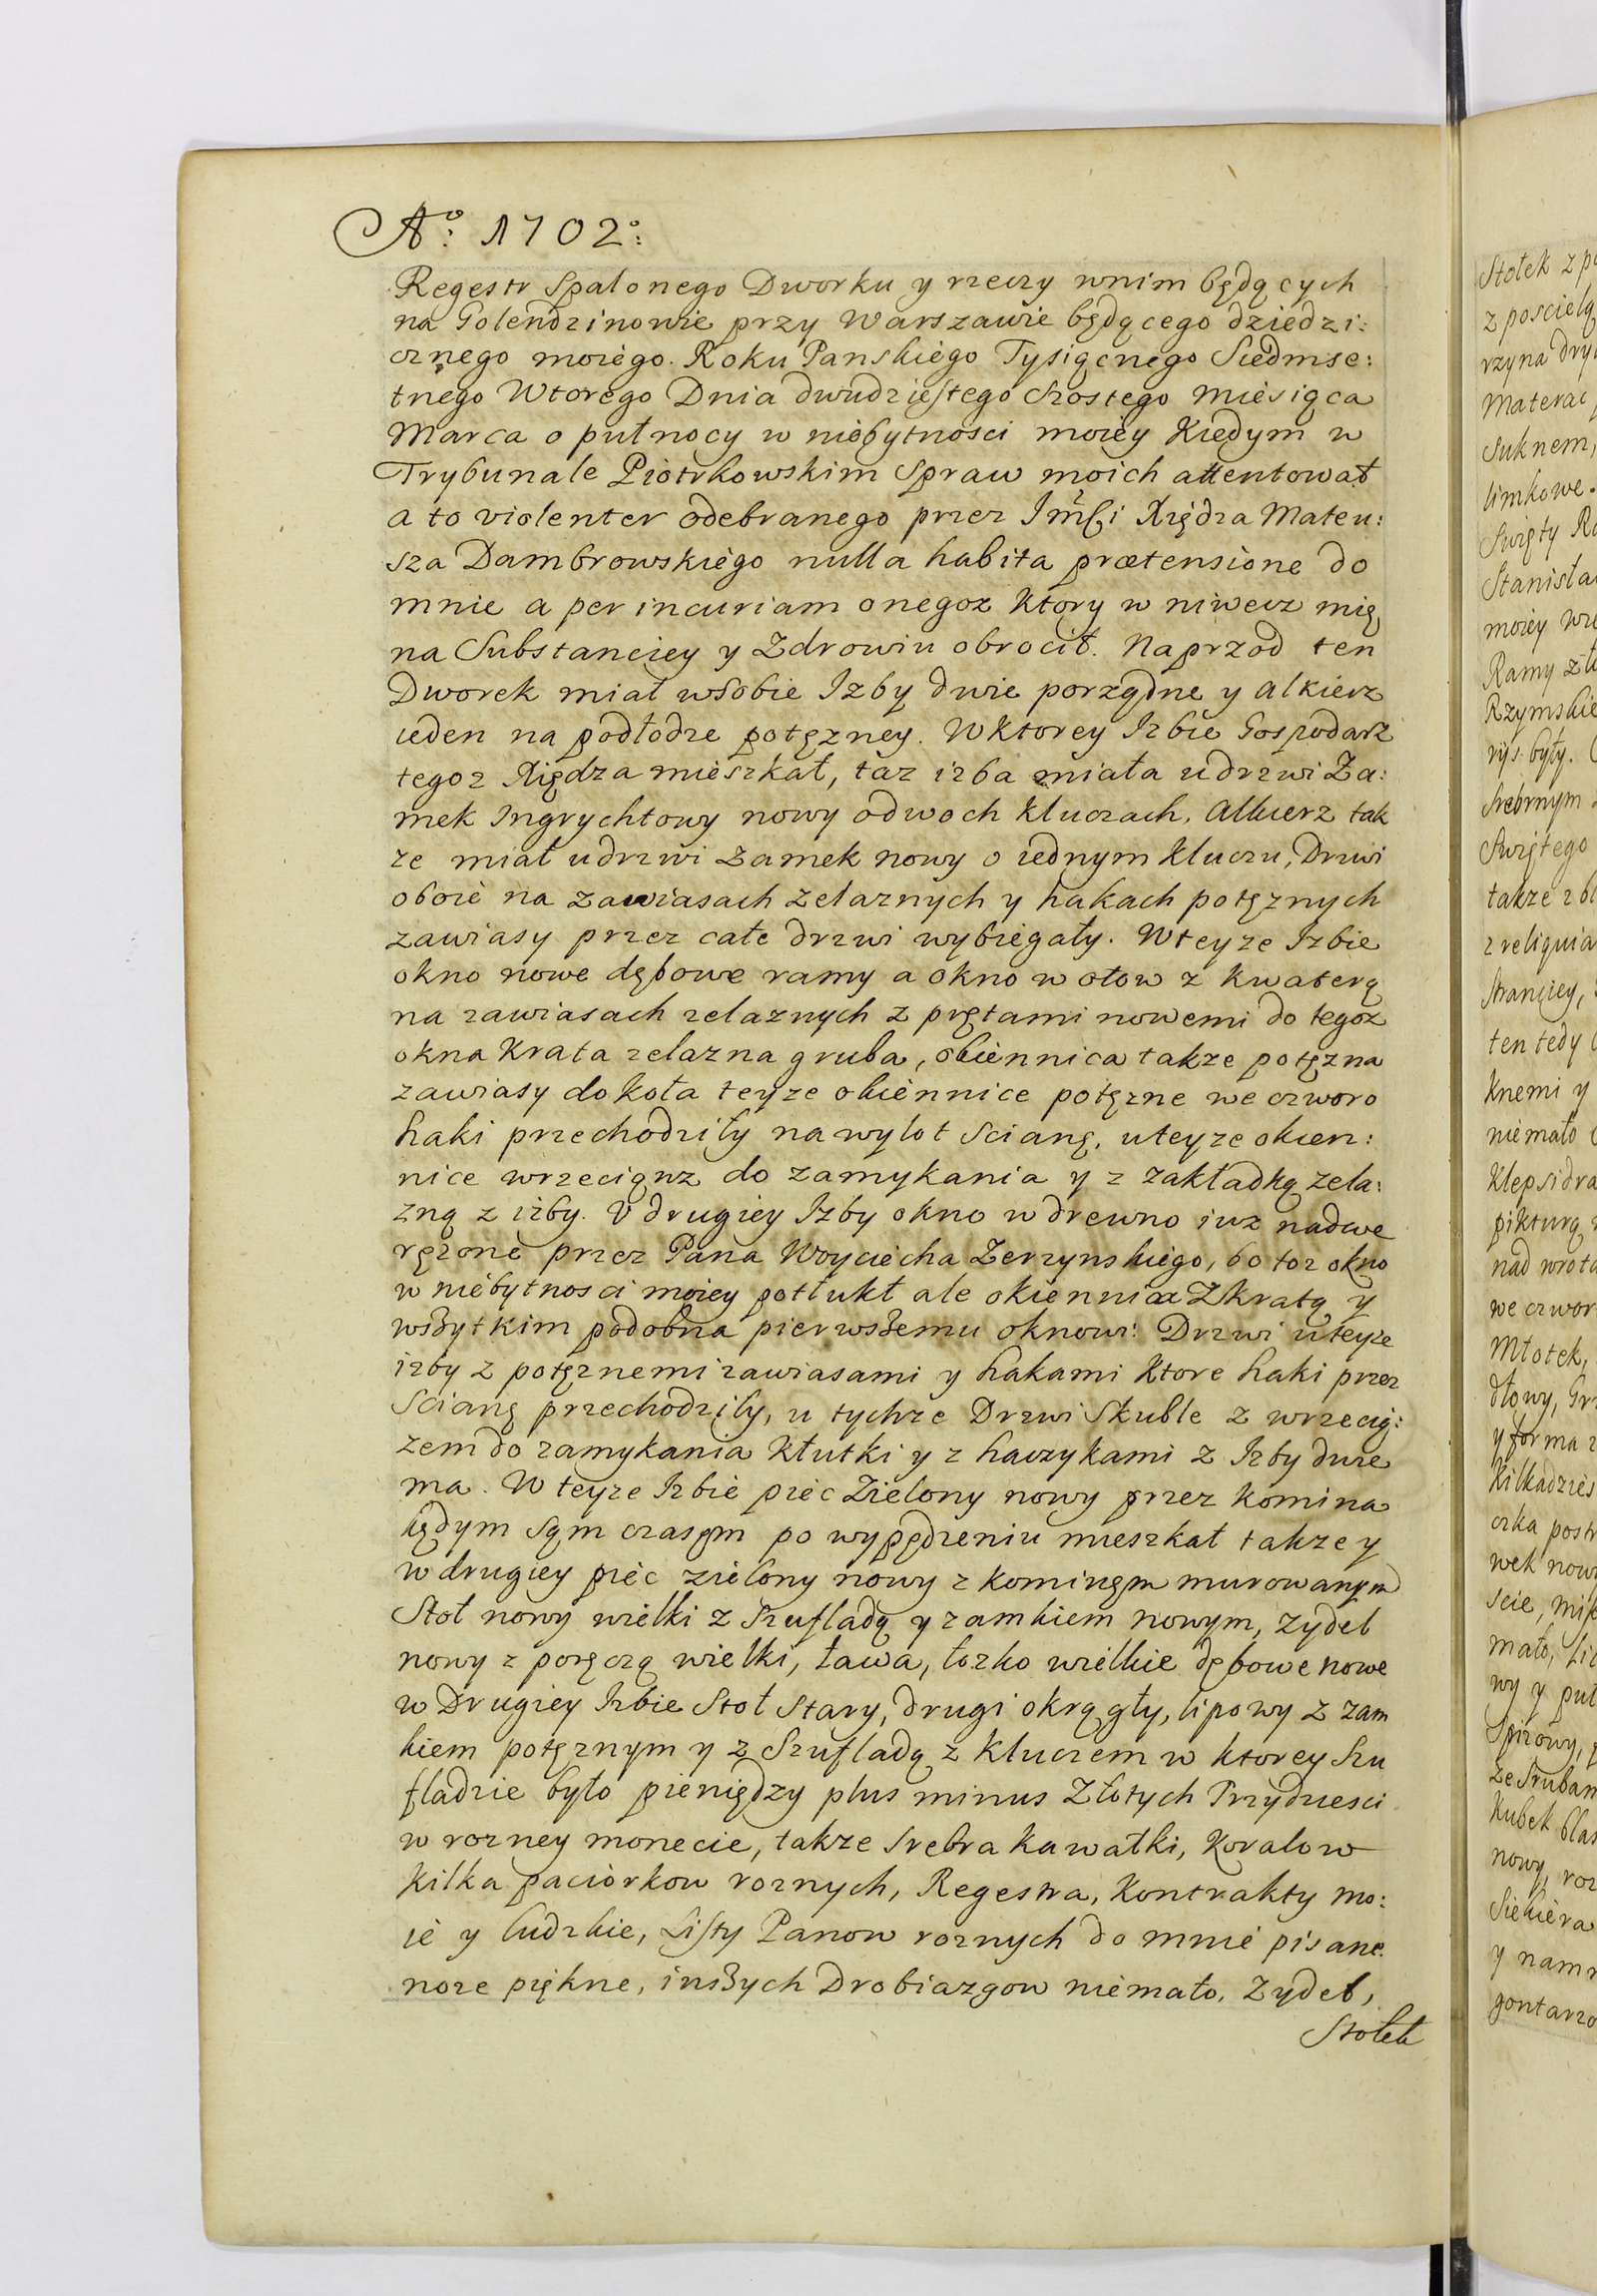 Aº: 1702º:
Regestr Spalonego Dworku y rzeczy wnim będących
na Golendzinowie przy Warszawie będącego dziedzi:
cznego moiego. Roku Panskiego Tysiącnego Siedmse:
tnego Wtorego Dnia dwudziestego Szostego Miesiąca
Marca o pułnocy w niebytnosci moiey Kiedym w
Trybunale Piotrkowskim Spraw moich attentował
a to violenter odebranego przez Xiędza Mateu:
sza Dambrowskiego nulla habita prætensione do
mnie a per incuriam onegoz Ktory w niwecz mię
na Substanciey y Zdrowiu obrocił. Naprzod ten
Dworek miał wSobie Izby dwie porządne y alkierz
ieden na podłodze potęzney. WKtorey Izbie Gospodarz
tegoz Xiędza mieszkał, taz izba miała udrzwi Za:
mek Ingrychtowy nowy odwoch Kluczach, Alkierz tak
ze miał udrzwi Zamek nowy o iednym Kluczu, Drzwi
oboie na Zawiasach Zelaznych y hakach potęznych
zawiasy przez całe drzwi wybiegały. Wteyze Izbie
okno nowe dębowe ramy a okno w ołow z Kwaterą
na zawiasach zelaznych z prętami nowemi do tegoz
okna Krata zelazna gruba, okiennica takze potęzna
zawiasy dokoła teyze okiennice potęzne we czworo
haki przechodziły na wylot Scianę, uteyze okien:
nice wrzeciąnz do zamykania y z zakładką zela:
zną z izby. V drugiey Izby okno w drewno iuz nadwe
ręzone przez Pana Woyciecha Zerzynskiego, bo toz okno
w niebytnosci moiey potłukł ale okiennica Zkratą y
wszytkim podobna pierwszemu oknowi. Drzwi uteyze
izby z potęznemi zawiasami y hakami Ktore haki przez
Scianę przechodziły, u tychze Drzwi Skuble z wrzecią:
zem do zamykania Kłutki y z haczykami z Izby dwie
ma. W teyze Izbie piec Zielony nowy przez Komina
kędym Sąm czasęm po wypędzeniu mieszkał takze y
w drugiey piec zielony nowy z Kominęm murowanym
Stoł nowy wielki z Szufladą y zamkiem nowym, Zydel
nowy z poręczą wielki, Ława, łozko wielkie dębowe nowe
w Drugiey Izbie Stoł Stary, drugi okrągły, lipowy z zam
kiem potęznym y z Szufladą z Kluczem w ktorey Szu
fladzie było pieniędzy plus minus Złotych Trzydziesci
w rozney monecie, takze Srebra Kawałki, Koralow
Kilka paciorkow roznych, Regestra, Kontrakty mo:
ie y ludzkie, Listy Panow roznych do mnie pisane.
noze piękne, inszych Drobiazgow niemało, Zydel,
Stołek
Stołek z
z poscielą
rzyna
Materac
Suknem,
limkowe.
Swięty
moiey
Ramy
były.
Srebrnym
Swiętego
takze z
z reliquia
ten tedy
Knemi y
niemało
Klepsidra
pikturą
we czwor
Młotek,
y forma
czka
wek
scie,
mało,
wy y
Kubek
nowy,
Siekiera
y